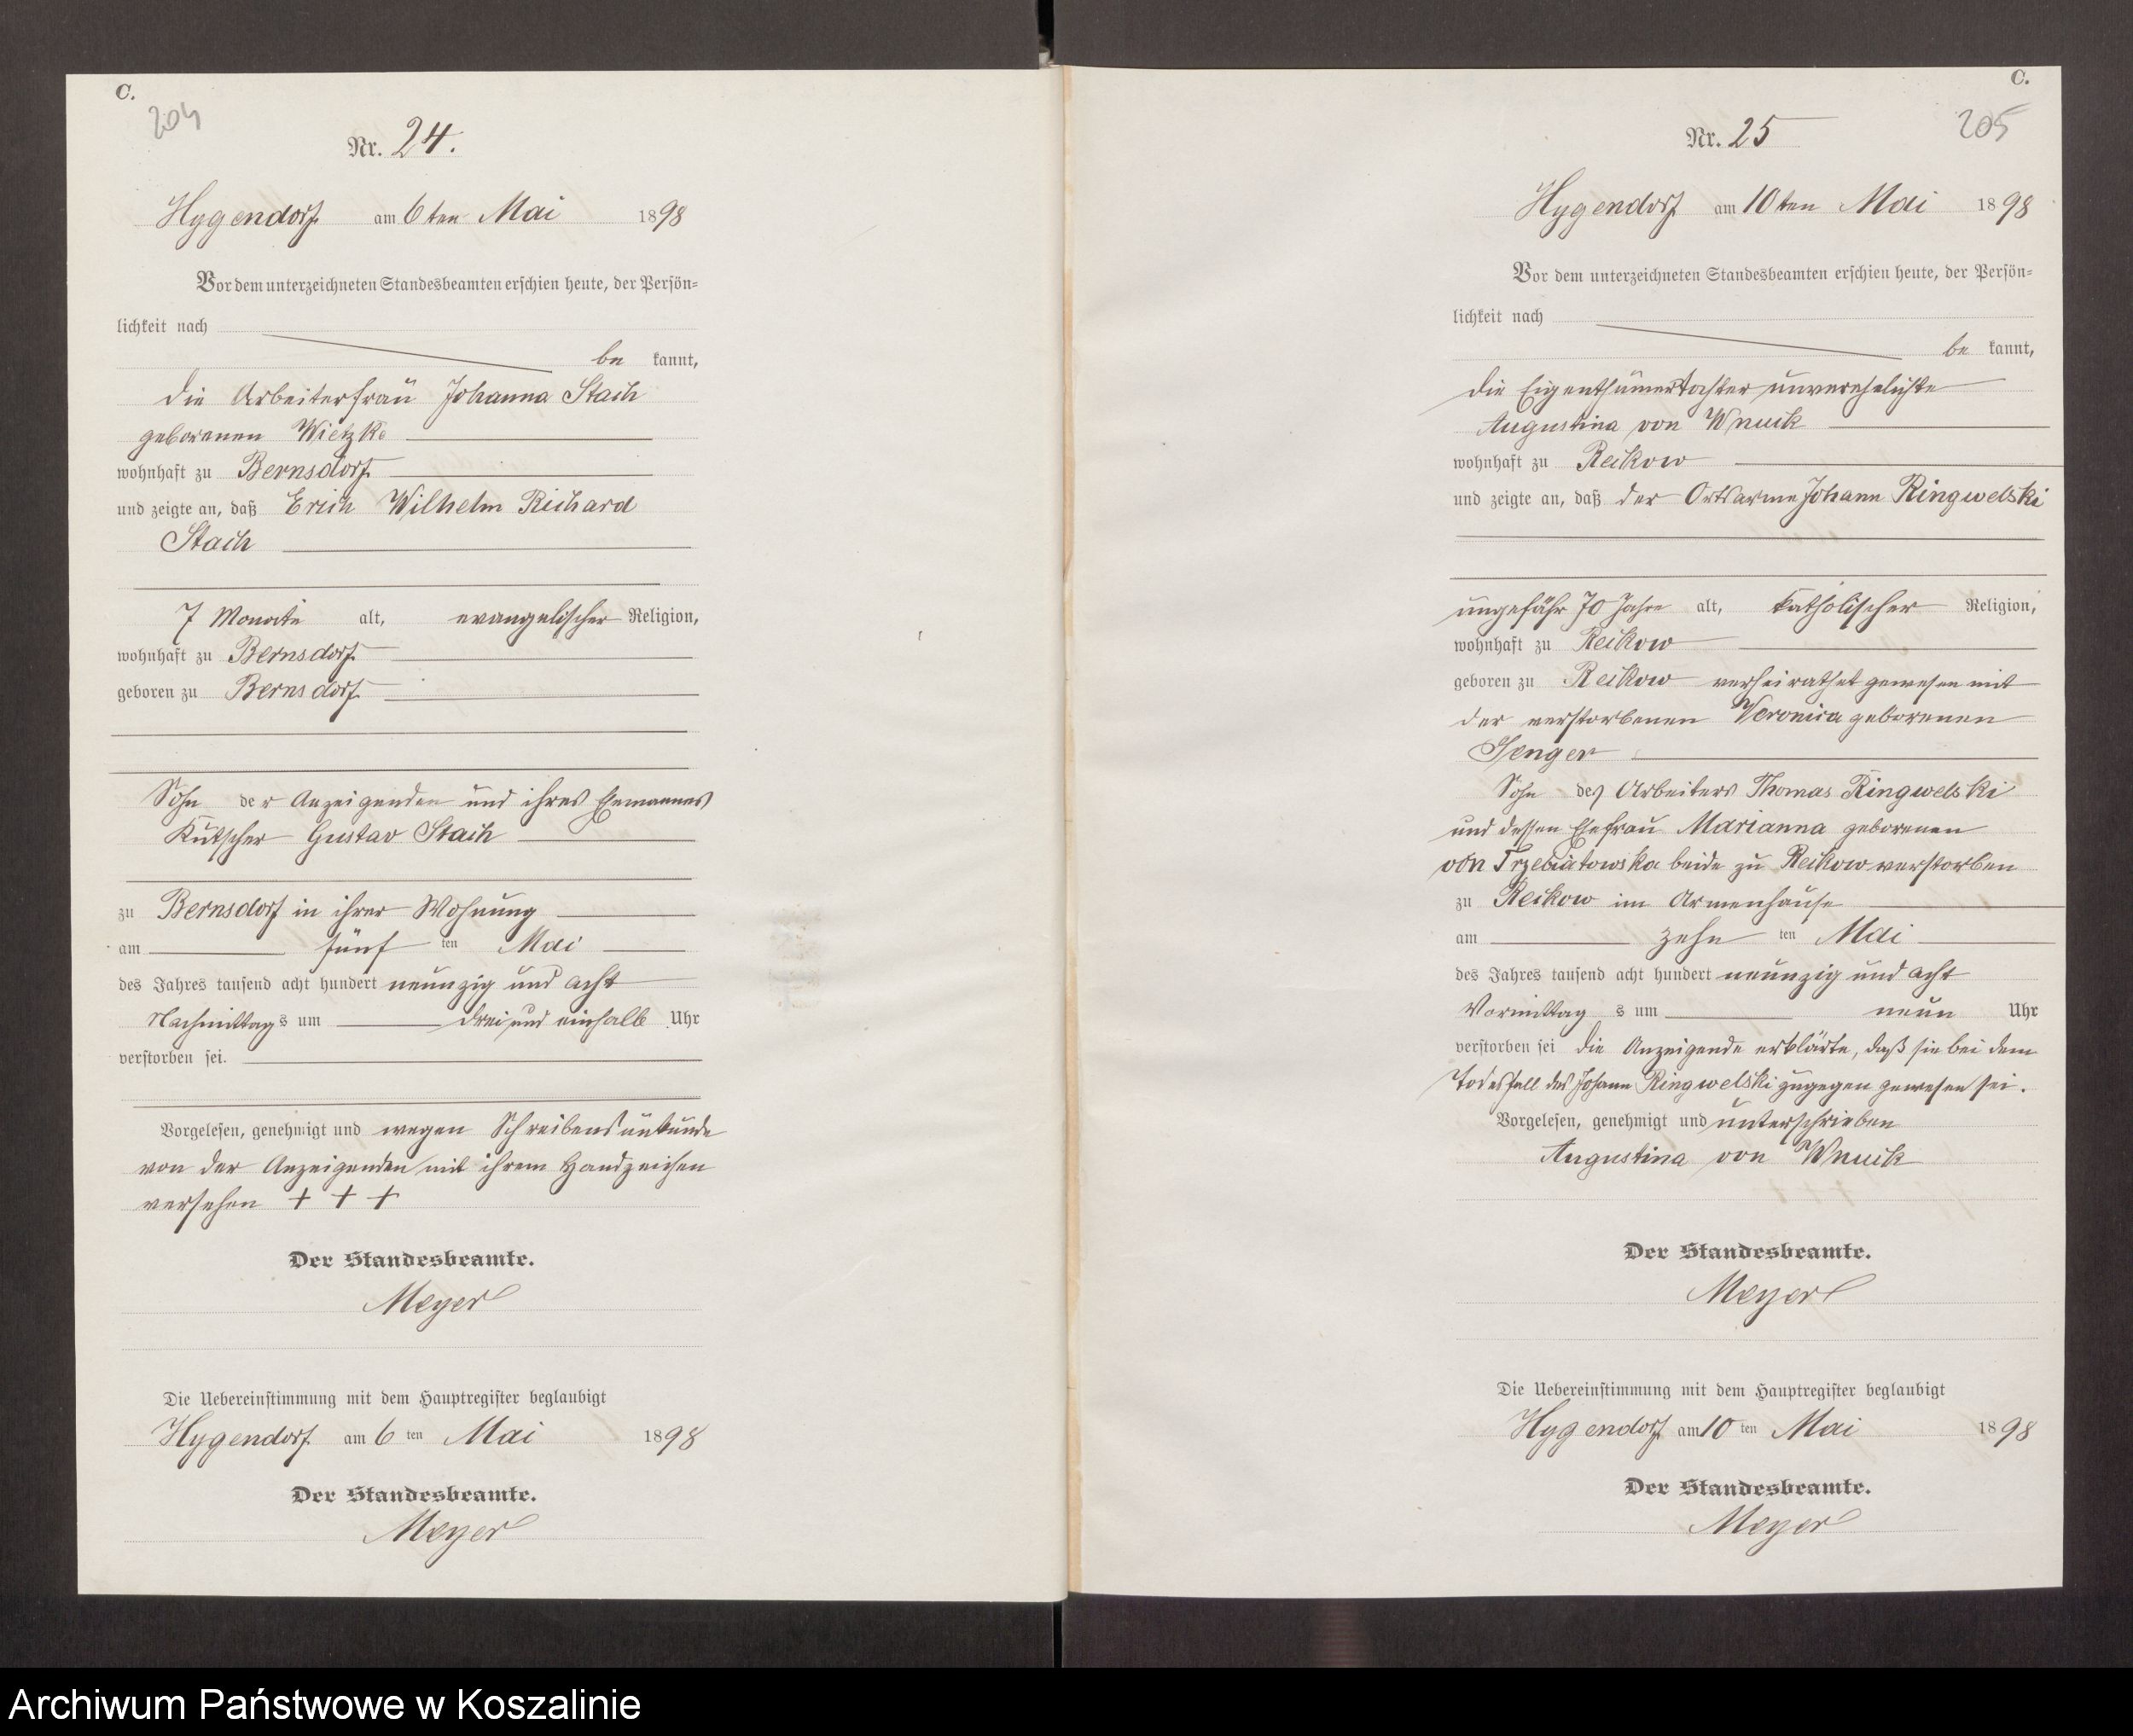 C.
204
Nr. 24.
Hygendorf am 6ten Mai 1898
Vor dem unterzeichneten Standesbeamten erschien heute, der Persön=
lichkeit nach
be kannt,
die Arbeiterfrau Johanna Stach
geborenen Wietzke
wohnhaft zu Bernsdorf
und zeigte an, daß Erich Wilhelm Richard
Stach
7 Monate alt, evangelischer Religion,
wohnhaft zu Bernsdorf
geboren zu Bernsdorf
Sohn der Anzeigenden und ihres Ehemannes
Kutscher Gustav Stach
zu Bernsdorf in ihrer Wohnung
am fünf ten Mai
des Jahres tausend acht hundert neunzig und acht
Nachmittag s um drei und einhalb Uhr
verstorben sei.
Vorgelesen, genehmigt und wegen Schreibensunkunde
von der Anzeigenden mit ihrem Handzeichen
versehen + + +
Der Standesbeamte.
Meyer
Die Uebereinstimmung mit dem Hauptregister beglaubigt
Hygendorf am 6 ten Mai 1898
Der Standesbeamte.
Meyer
C.
205
Nr. 25
Hygendorf am 10ten Mai 1898
Vor dem unterzeichneten Standesbeamten erschien heute, der Persön=
lichkeit nach
be kannt,
die Eigenthümertochter unverehelichte
Augustina von Wnuck
wohnhaft zu Reckow
und zeigte an, daß der Ortsarme Johann Ringwelski
ungefähr 70 Jahre alt, katholischer Religion,
wohnhaft zu Reckow
geboren zu Reckow verheirathet gewesen mit
der verstorbenen Veronica geborenen
Senger
Sohn des Arbeiters Thomas Ringwelski
und dessen Ehefrau Marianna geborenen
von Trzebiatowska beide zu Reckow verstorben
zu Reckow im Armenhause
am zehn ten Mai
des Jahres tausend acht hundert neunzig und acht
Vormittag s um neun Uhr
verstorben sei die Anzeigende erklärte, daß sie bei dem
Todesfall des Johann Ringwelski zugegen gewesen sei.
Vorgelesen, genehmigt und unterschrieben
Augustina von Wnuck
Der Standesbeamte.
Meyer
Die Uebereinstimmung mit dem Hauptregister beglaubigt
Hygendorf am 10 ten Mai 1898
Der Standesbeamte.
Meyer
Archiwum Państwowe w Koszalinie